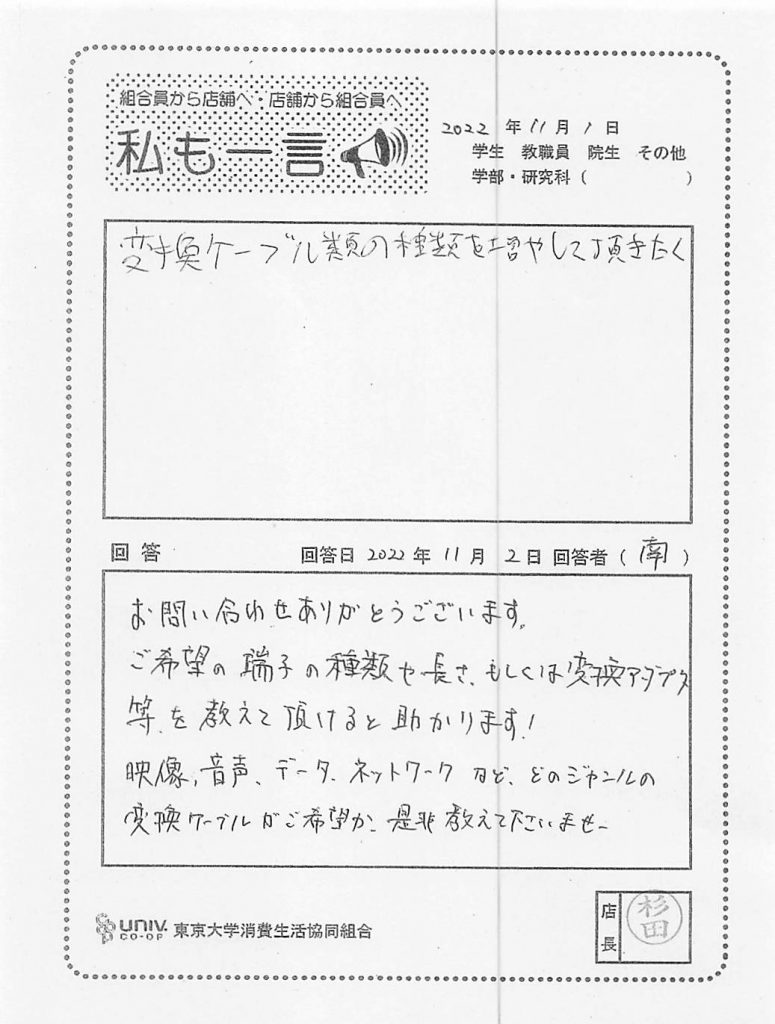 組合員から店舗へ・店舗から組合員へ
私も一言
2022 年 11 月 1 日
学生 教職員 院生 その他
学部・研究科 ( )
変換ケーブル類の種類を増やして頂きたく
回 答 回答日 2022 年 11 月 2 日 回答者 ( 南 )
お問い合わせありがとうございます。
ご希望の端子の種類や長さ、もしくは変換アダプタ
等、を教えて頂けると助かります!
映像,音声、データ、ネットワークなど、どのジャンルの
変換ケーブルがご希望か、是非教えて下さいませ〜
UNIV. CO-OP 東京大学消費生活協同組合
店長 杉田